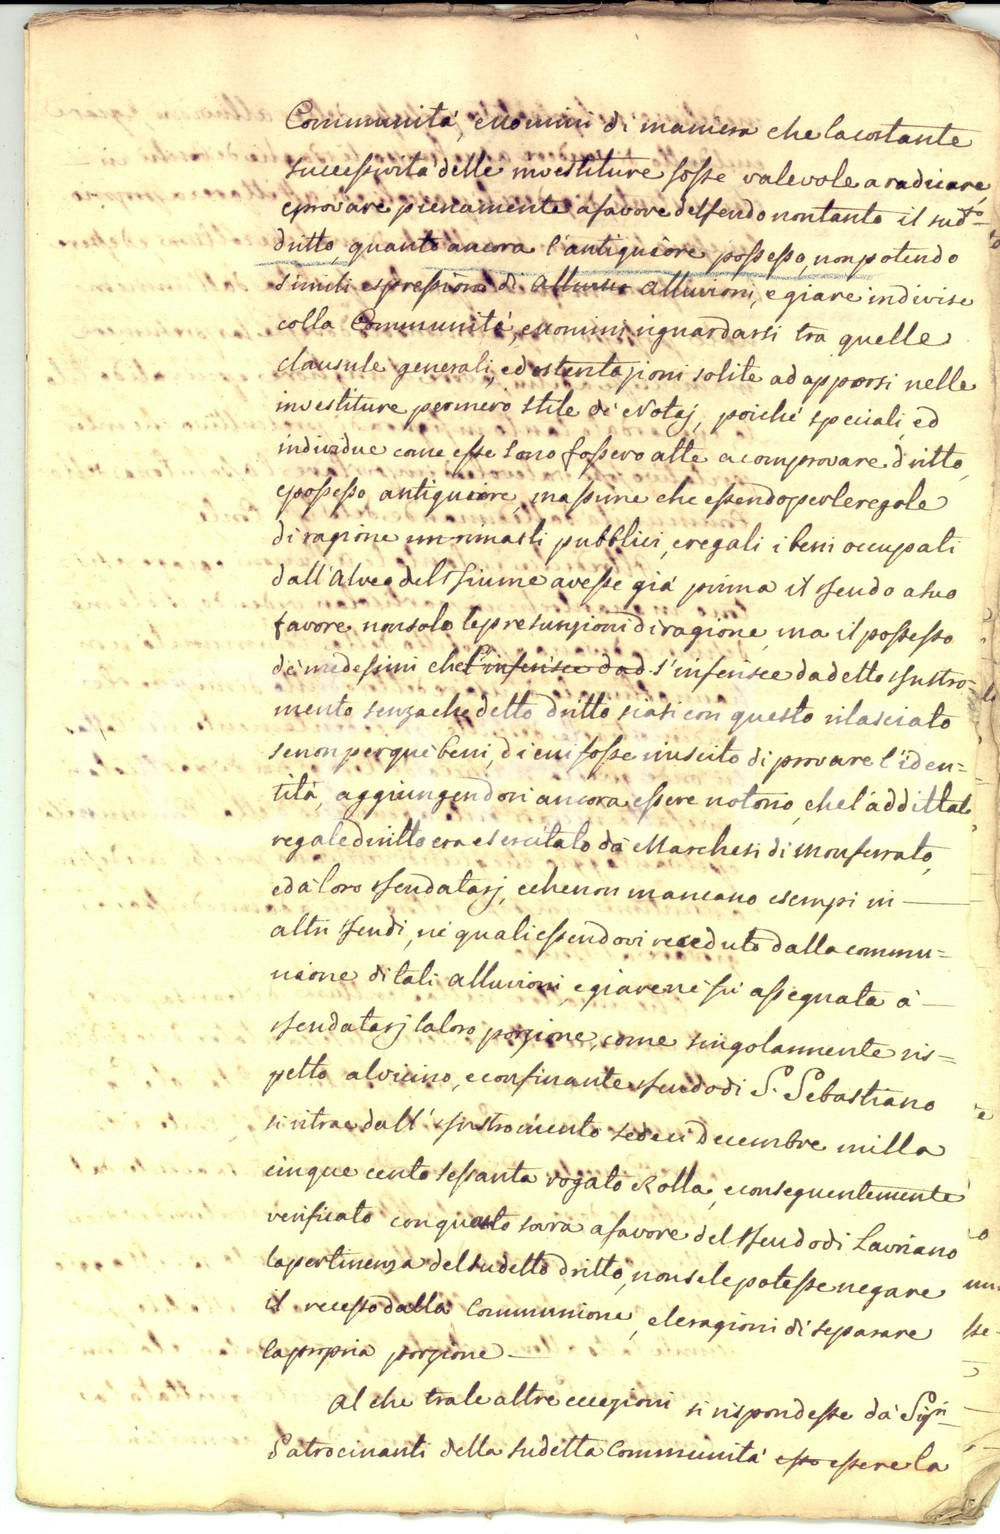 Communità, euomini di maniera che lacostante
successività delle investiture fosse valevole a radicare,
eprovare pienamente afavore delfeudo nontanto il sudto
dritto, quanto ancora l'antiquiore possesso, nonpotendo
simili espressioni di alluvioni, e giare indivise
colla Communità, euomini riguardarsi tra quelle
clausule generali, ed ostentazioni solite ad apporsi nelle
investiture permero stile de Notaj, poiché speciali, ed
individue come esse sono fossero atte acomprovare dritto,
epossesso antiquiore, massime che essendo perleregole
di ragione rimasti pubblici, eregali i beni occupati
dall'alveo del fiume avesse già prima il feudo asuo
favore nonsolo lepresunzioni diragione, ma il possesso
de medesimi che l'inferisce dad s'inferisce dadetto Instro=
mento senzache detto dritto siasi con questo rilasciato
senon perque beni, di cui fosse riuscito di provare l'iden=
tità, aggiungendovi ancora essere notorio, che l'addittato
regale dritto era esercitato da Marchesi di Monferrato,
eda loro feudatarj, eche non mancano esempi in
altri feudi, ne quali essendovi receduto dalla commu=
nione di tali alluvioni, egiare ne fù assegnata à
feudatarj la loro porzione, come singolarmente ris=
petto al vicino, econfinante feudo di S. Sebastiano
si ritrae dall'Instromento sedeci decembre milla
cinque cento sessanta rogato Rolla, econseguentemente
verificato con questo sovra afavore del feudo di Lavriano
lapertinenza delsudetto dritto, nonsele potesse negare
il recesso dalla Communione, eleragioni di separare
lapropria porzione
Al che trale altre eccezioni si rispondesse da Sigri
Patrocinanti della sudetta Communità esso essere la